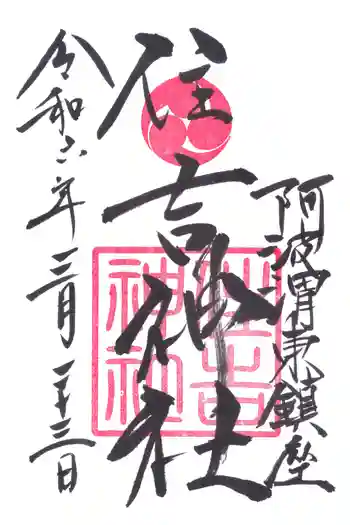 阿波渭東鎮座
住吉神社
住吉神社
令和六年三月二十三日